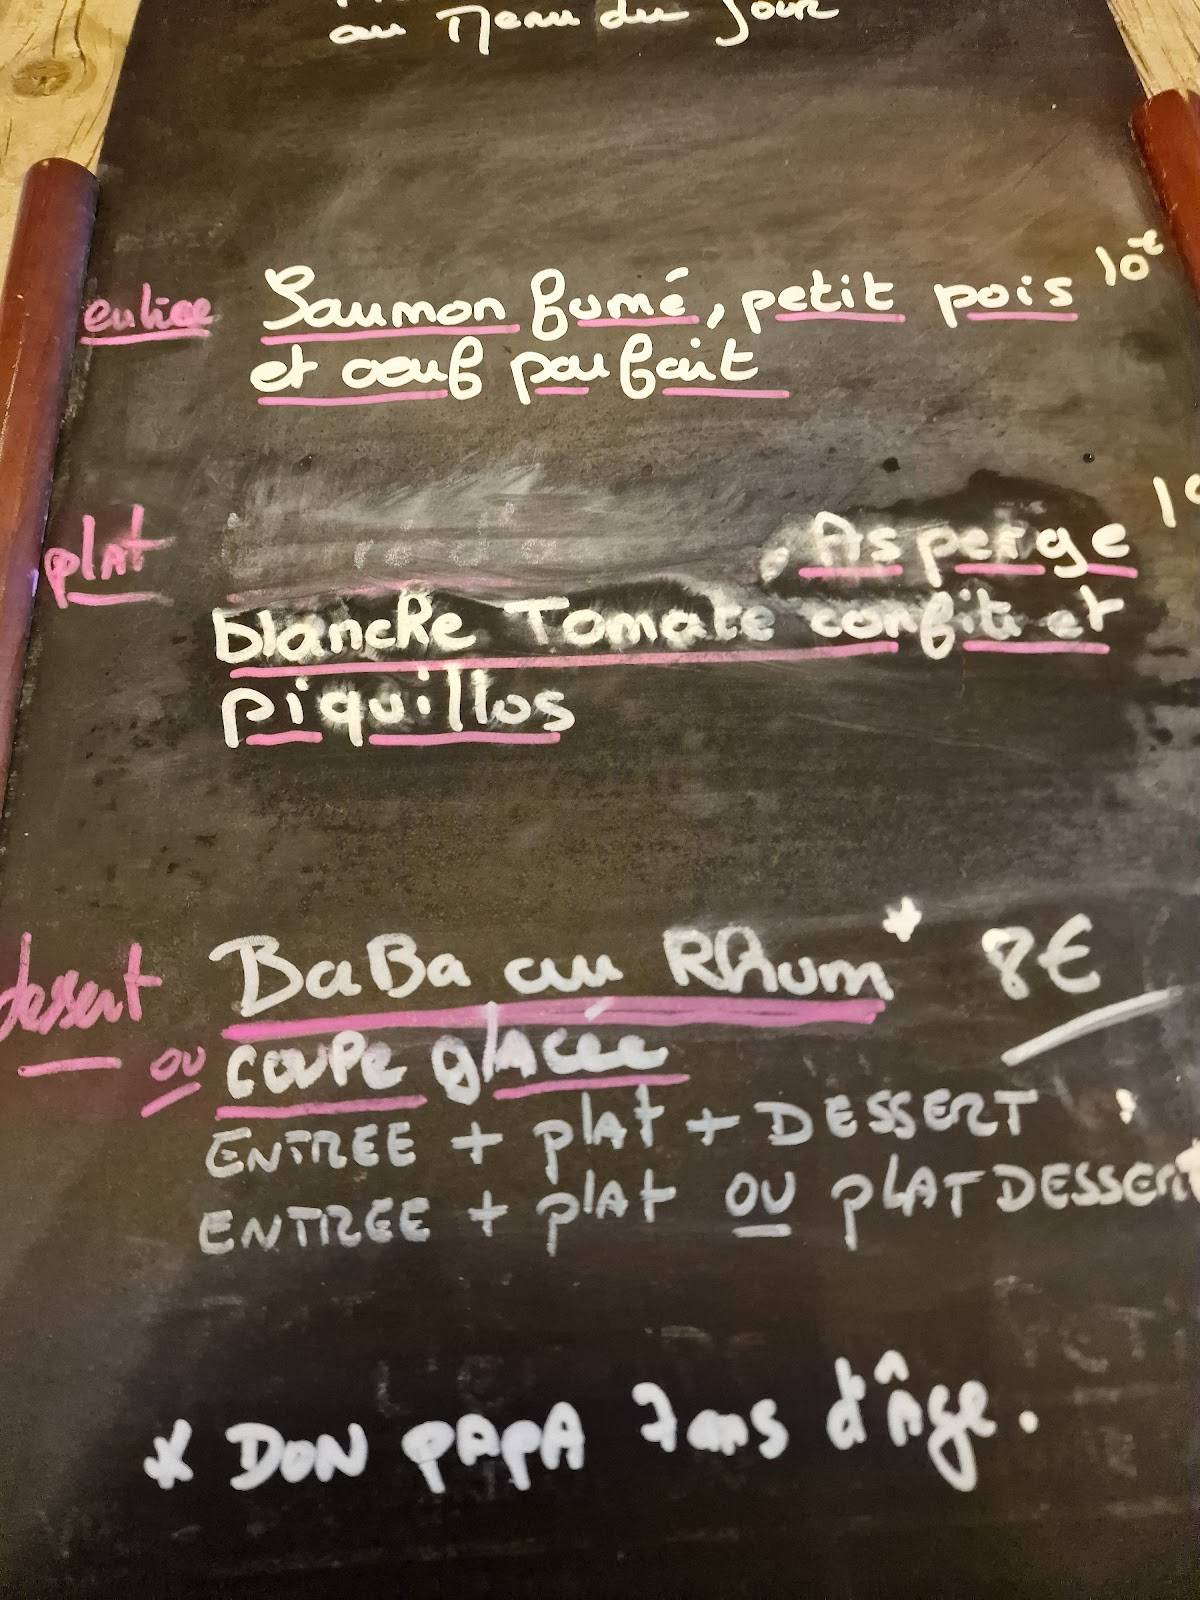 au Menu du Jour
entrée Saumon fumé, petit pois 10€
et oeuf parfait
plat , Asperge
blanche Tomate confite et
piquillos
dessert BaBa au RHum* 8€
ou coupe glacée
ENTREE + plAt + DESSERT
ENTREE + plAt OU plAT DESSERT
* DON PAPA 7ans d'Âge.